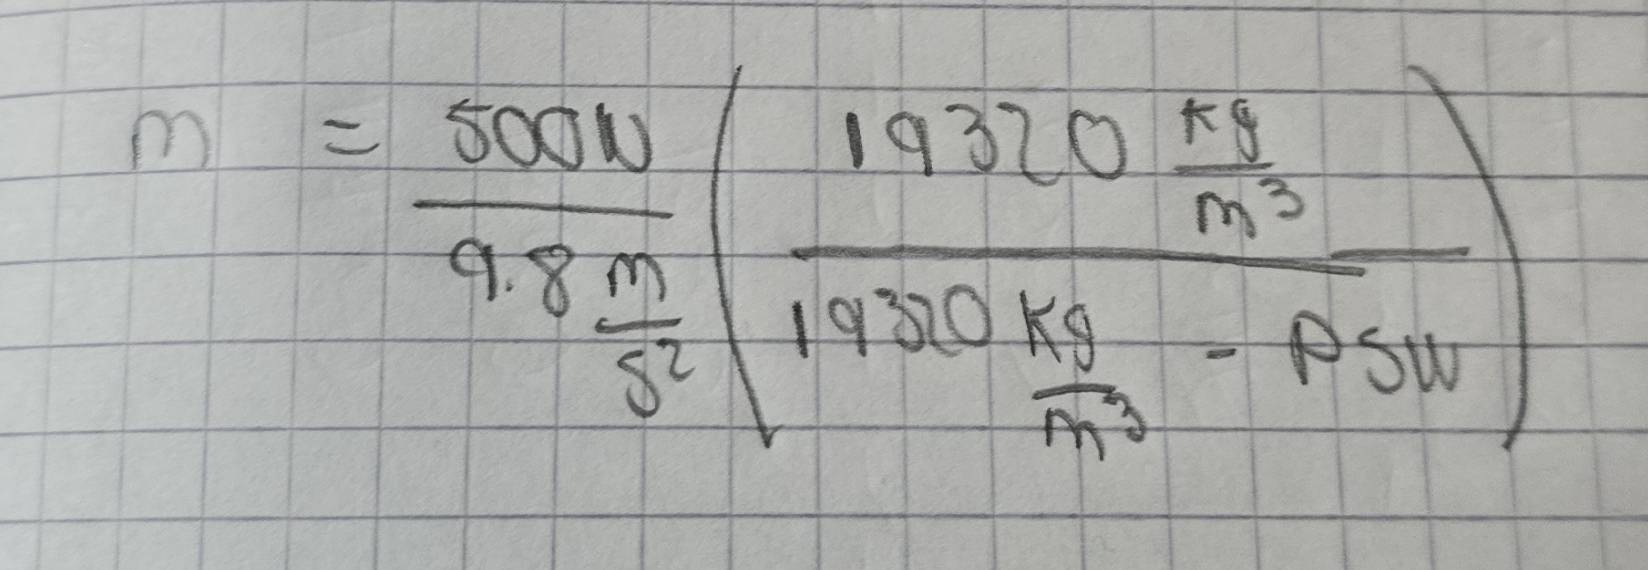 m = \frac{500N}{9.8 \frac{m}{s^2}} \left( \frac{19320 \frac{kg}{m^3}}{19320 \frac{kg}{m^3} - ρsw} \right)